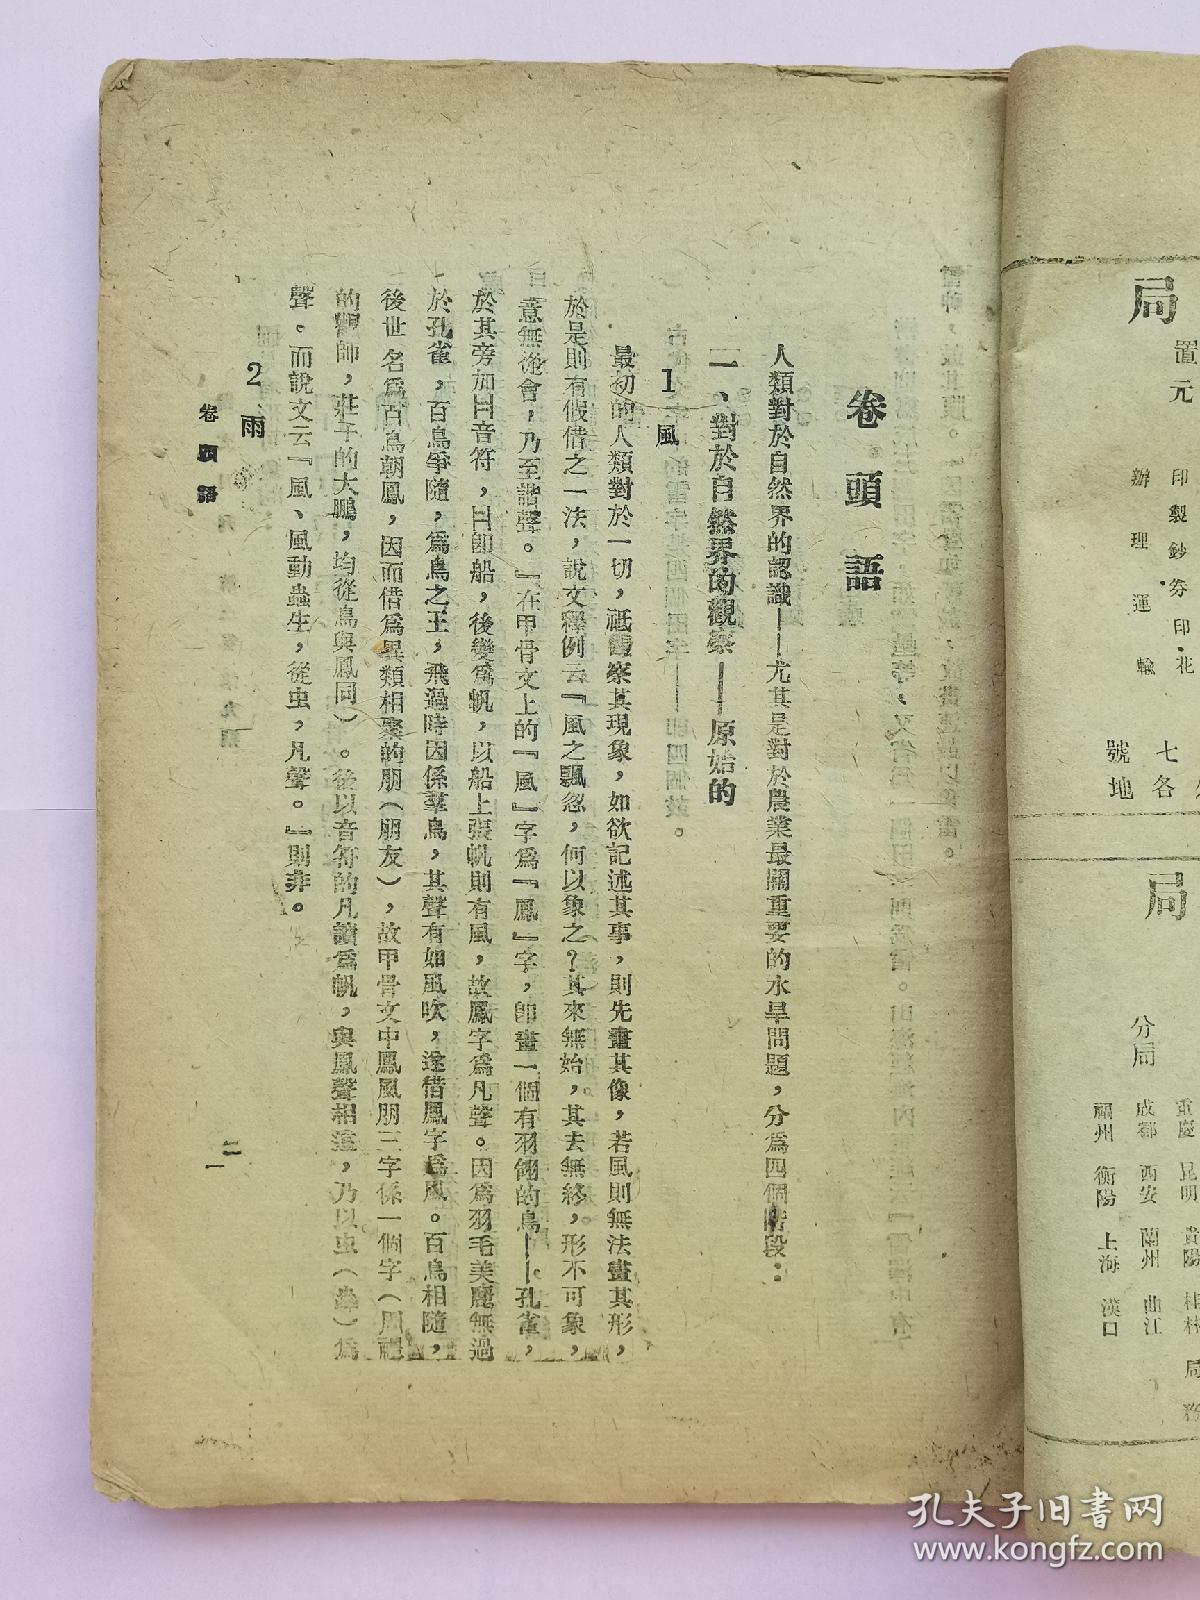 卷頭語
人類對於自然界的認識——尤其是對於農業最關重要的水旱問題，分爲四個階段：
一、對於自然界的觀察——原始的
1 風
最初的人類對於一切，祗觀察其現象，如欲記述其事，則先畫其像，若風則無法畫其形，
於是則有假借之一法，說文釋例云『風之飄忽，何以象之？其來無始，其去無終，形不可象，
意無從會，乃至諧聲。』在甲骨文上的『風』字爲『鳳』字，卽畫一個有羽翎的鳥——孔雀，
於其旁加音符，卽船，後變爲帆，以船上張帆則有風，故鳳字爲凡聲。因爲羽毛美麗無過
於孔雀，百鳥爭隨，爲鳥之王，飛過時因係羣鳥，其聲有如風吹，遂借鳳字爲風。百鳥相隨，
後世名爲百鳥朝鳳，因而借爲異類相聚的朋（朋友），故甲骨文中鳳風朋三字係一個字（周禮
的飌師，莊子的大鵬，均從鳥與鳳同）。後以音符的凡讀爲帆，與鳳聲相混，乃以虫（ ）爲
聲。而說文云『風、風動蟲生，從虫，凡聲。』則非。
2 雨
卷頭語
二一
局
置
元
印製鈔券印花
辦理運輸
七號
各地
局
分局
重慶 昆明 貴陽 桂林
成都 西安 蘭州 曲江
福州 衡陽 上海 漢口
局
孔夫子旧书网
www.kongfz.com